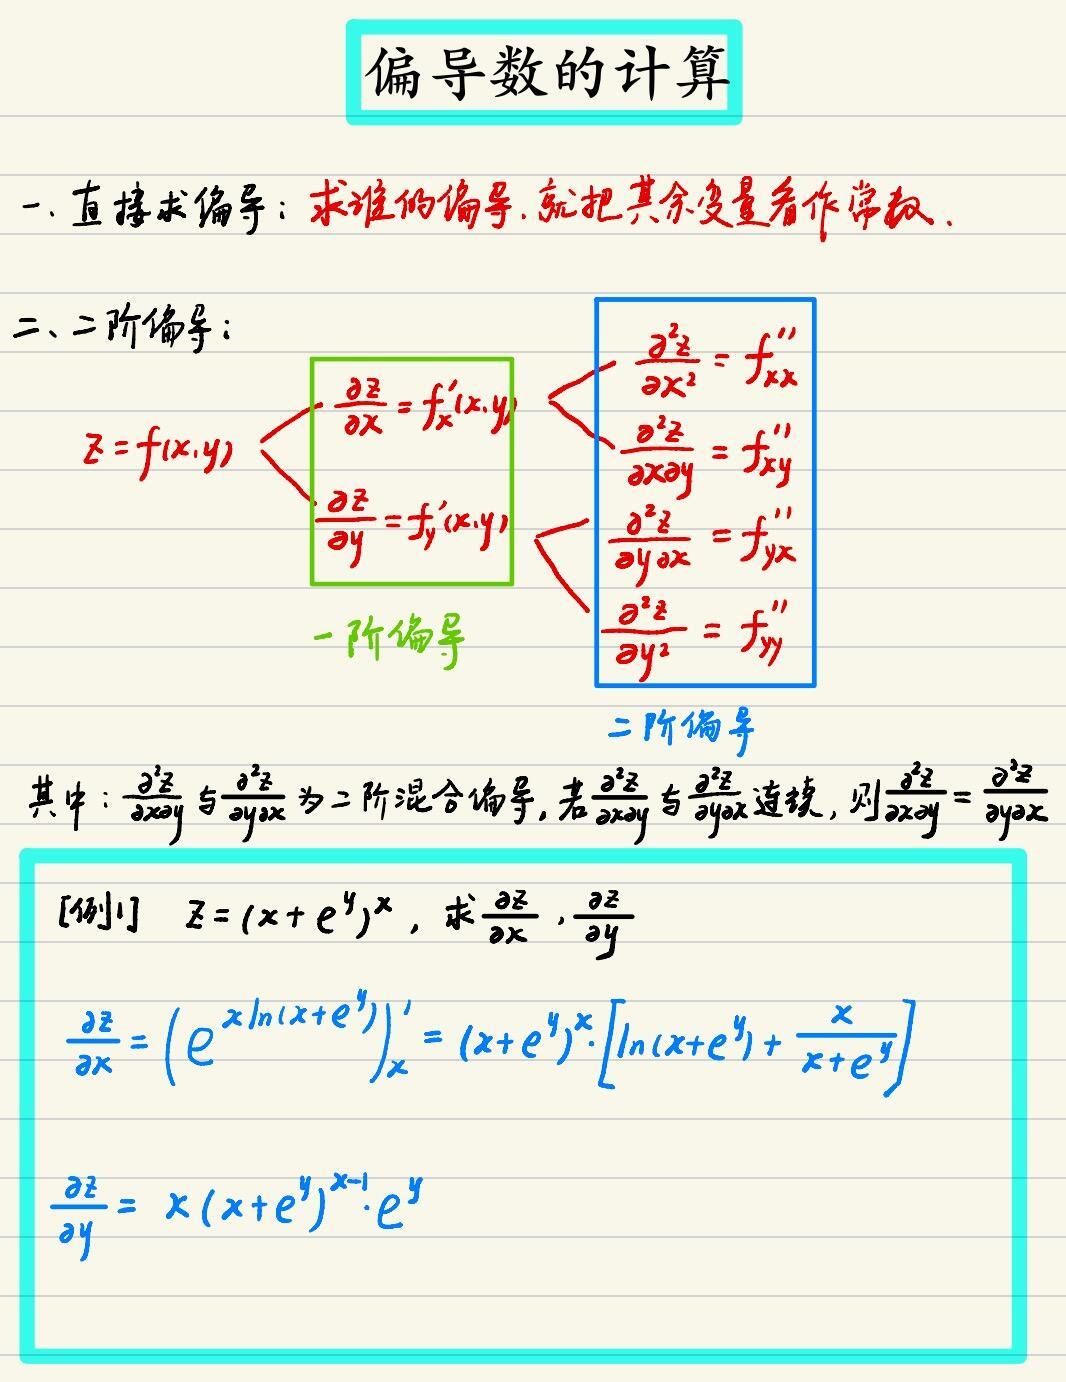 偏导数的计算
一. 直接求偏导: 求谁的偏导.就把其余变量看作常数.
二、二阶偏导:
z = f(x,y)
∂z/∂x = f'x(x,y)
∂z/∂y = f'y(x,y)
一阶偏导
∂²z/∂x² = f''xx
∂²z/∂x∂y = f''xy
∂²z/∂y∂x = f''yx
∂²z/∂y² = f''yy
二阶偏导
其中: ∂²z/∂x∂y 与 ∂²z/∂y∂x 为二阶混合偏导, 若 ∂²z/∂x∂y 与 ∂²z/∂y∂x 连续, 则 ∂²z/∂x∂y = ∂²z/∂y∂x
[例1] z = (x + e^y)^x, 求 ∂z/∂x , ∂z/∂y
∂z/∂x = (e^(x ln(x+e^y)))'x = (x+e^y)^x · [ln(x+e^y) + x/(x+e^y)]
∂z/∂y = x(x+e^y)^(x-1) · e^y